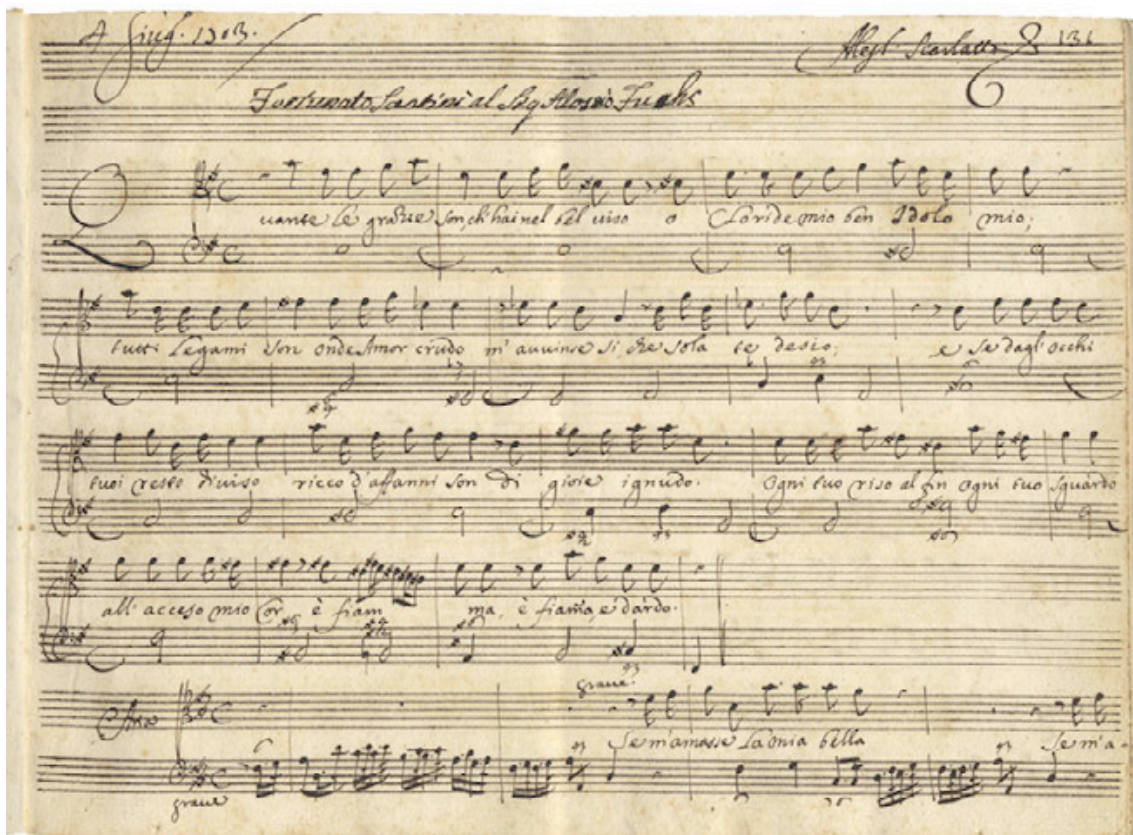 4 Giug. 1703.
Aless. Scarlatti 136
Fortunato Santini al Sig Aloysio Fuchs
Quante le grazie son, ch'hai nel bel viso o Cloride mio ben Idolo mio;
tutti legami son onde Amor crudo m'avvinse si, che sola te desio; e se dagl'occhi
tuoi resto diviso ricco d'affanni son di gioie ignudo. Ogni tuo riso al fin ogni tuo sguardo
all'acceso mio Cor, è fiam ma, è fiama, e dardo.
grave
Aria
Se m'amasse la mia bella Se m'a-
grave